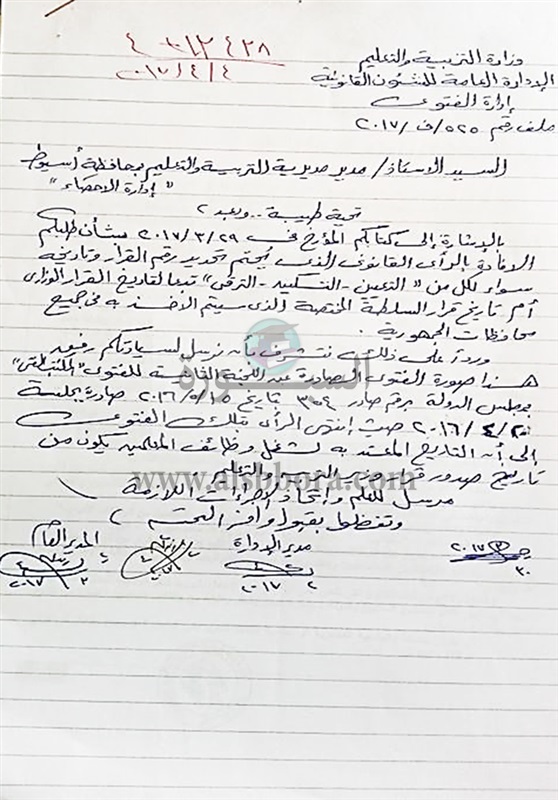 ٤٠١٢٤٢٨
٢٠١٧/٤/٤
وزارة التربية والتعليم
الإدارة العامة للشئون القانونية
إدارة الفتوى
ملف رقم ٥٢٥/ف/٢٠١٧
السيد الأستاذ/ مدير مديرية التربية والتعليم بحافظة أسيوط
"إدارة الاحصاء"
تحية طيبة .. وبعد ؟
بالإشارة إلى كتابكم المؤرخ فى ٢٠١٧/٣/٢٩ بشأن طلبكم
الافادة بالرأى القانونى الذى يُحتم تحديد رقم القرار وتاريخه
سواء لكل من "التعيين - التسكين - الترقى" تبعاً لتاريخ القرار الوزارى
أم تاريخ قرار السلطة المختصة الذى سيتم الأخذ به فى جميع
محافظات الجمهورية .
ورداً على ذلك نتشرف بأن نرسل لسيادتكم رفق
هذا صورة الفتوى الصادرة عن اللجنة الثالثة للفتوى
بمجلس الدولة برقم صادر ٣٥٤ تاريخ ٢٠١٦/٥/١٥ صادرة بجلسة
٢٠١٦/٤/٢٠ حيث إنتهى الرأى تلك الفتوى
إلى أن التاريخ المعتد به لشغل وظائف المعلمين يكون من
تاريخ صدور قرار وزير التربية والتعليم
www.alsbbora.com
السبورة
مرسل للعلم واتخاذ الإجراءات اللازمة
وتفضلوا بقبول وافر التحية ؟
مدير الإدارة
المدير العام
٢٠١٧
٢٠١٧
٢٠١٧
٣٠